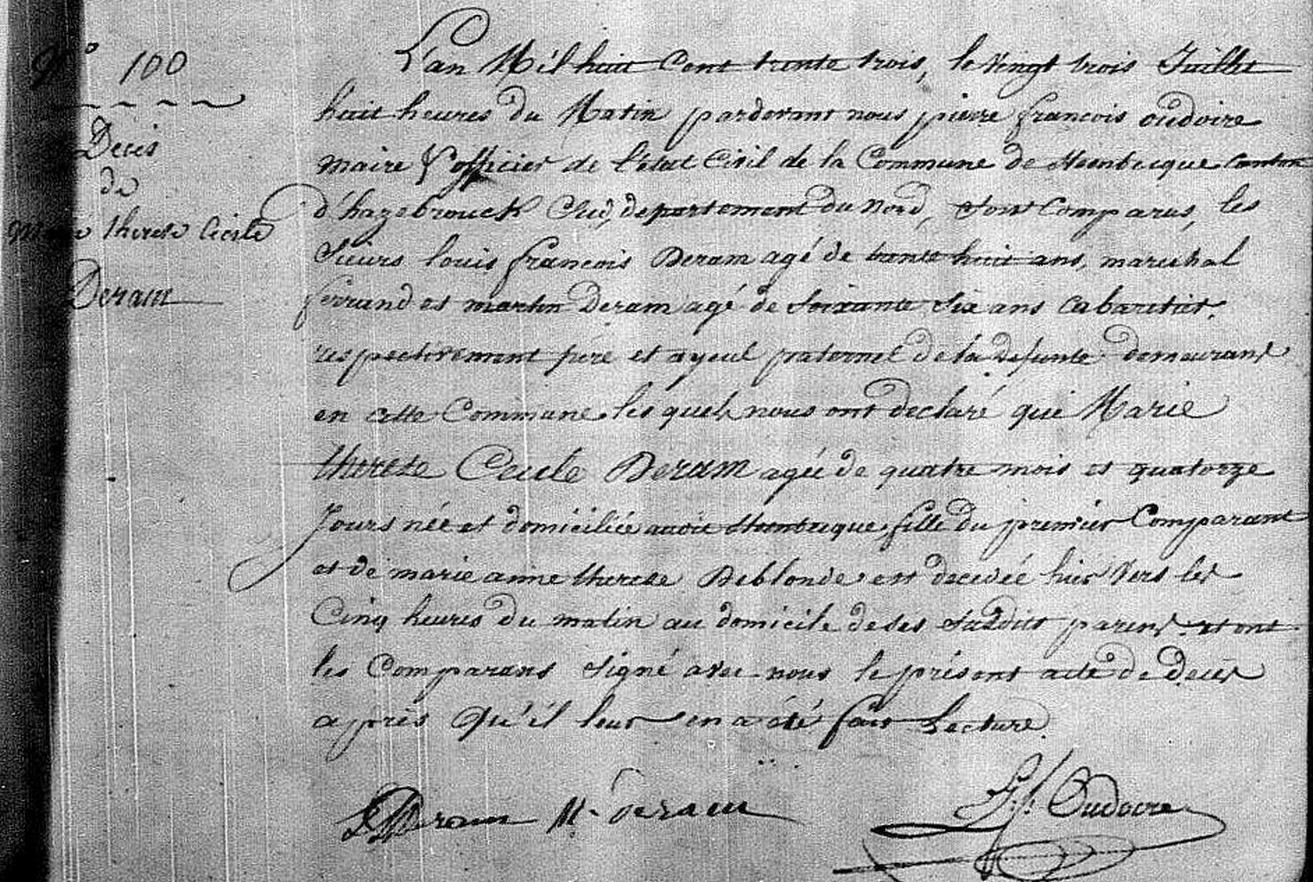 N° 100
Décès
de
Marie therese Cécile
Deram
L'an Mil huit Cent trente trois, le vingt trois Juillet
huit heures du Matin pardevant nous pierre françois oudoire
maire & officier de l'etat Civil de la Commune de Steenbecque Canton
d'hazebrouck Sud, departement du Nord, sont Comparus, les
Sieurs louis françois Deram agé de trente huit ans, marechal
ferrand et martin Deram agé de Soixante Six ans Cabaretier,
respectivement pere et ayeul paternel de la Defunte demeurans
en cette Commune, les quels nous ont declaré que Marie
therese Cecile Deram agée de quatre mois et quatorze
Jours née et domiciliée audit Steenbecque, fille du premier Comparant
et de marie anne therese Deblonde est decedée hier vers les
Cinq heures du matin au domicile de ses Susdits parens, et ont
les Comparans Signé avec nous le présent acte de decès
après qu'il leur en a été fait Lecture.
Deram M. deram P. f. Oudoire